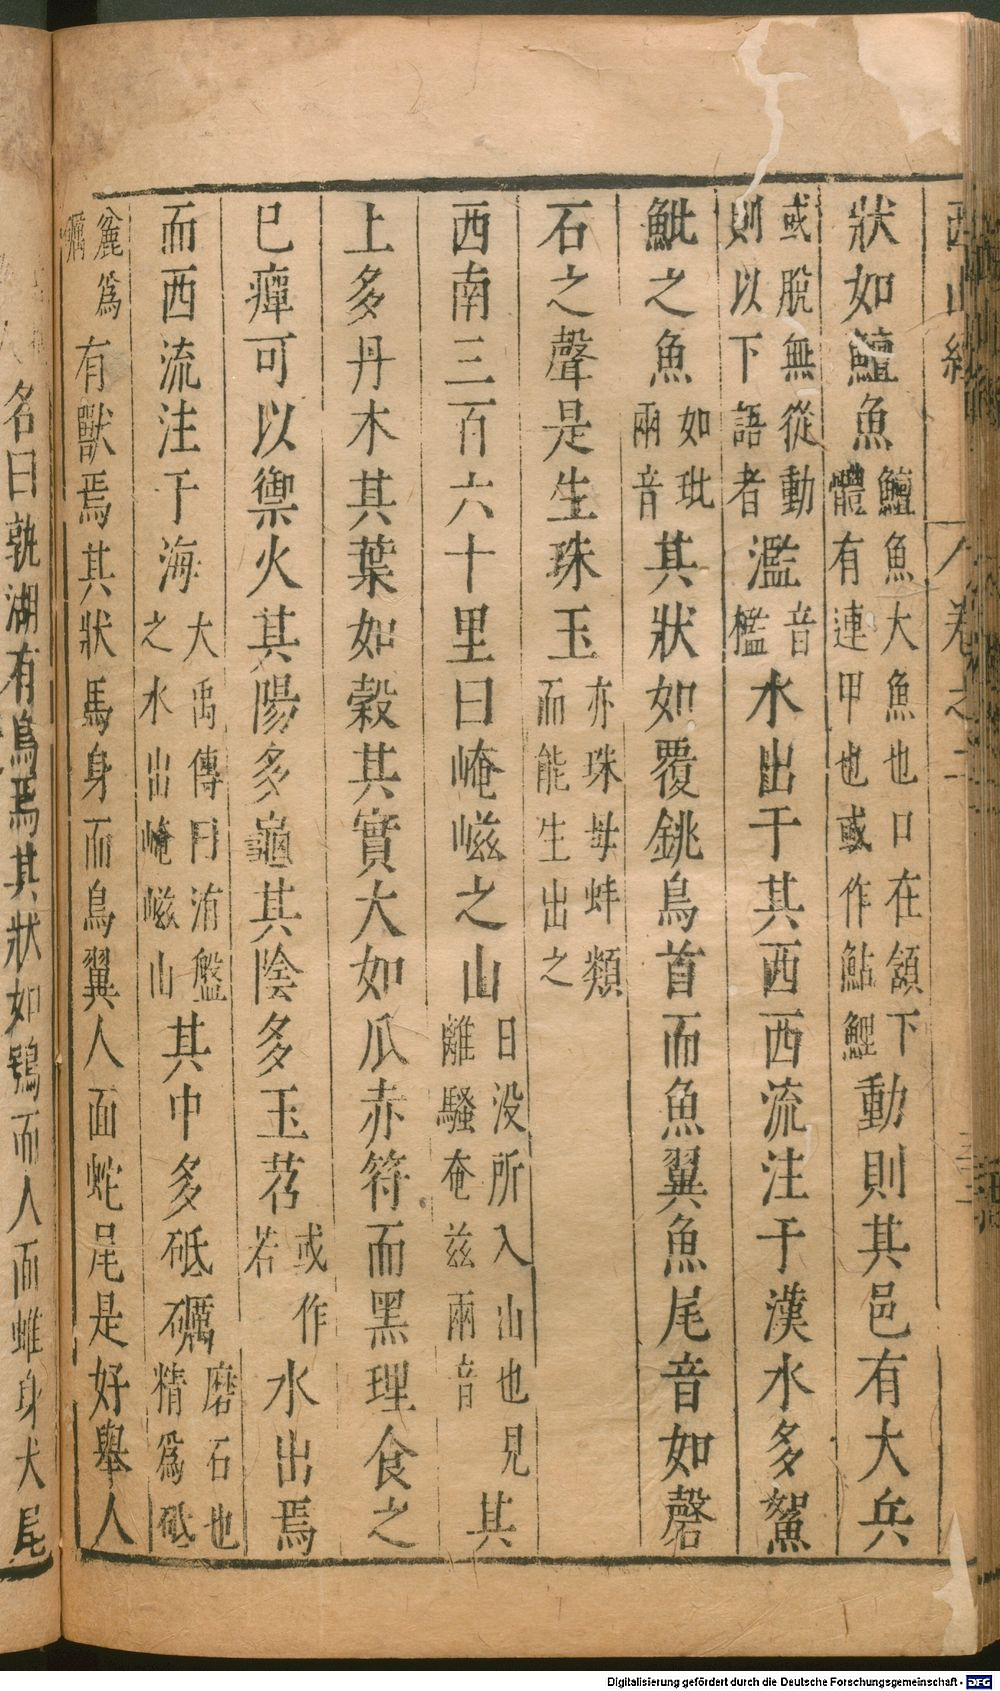 西山經 卷之二
狀如鱣魚鱣魚大魚也口在頷下體有連甲也或作鮎鯉動則其邑有大兵
或脫無從動則以下語者濫音檻水出于其西西流注于漢水多䰷
魮之魚如玭兩音其狀如覆銚鳥首而魚翼魚尾音如磬
石之聲是生珠玉亦珠母蚌類而能生出之
西南三百六十里曰崦嵫之山日没所入山也見離騷奄兹兩音其
上多丹木其葉如榖其實大如瓜赤符而黑理食之
已癉可以禦火其陽多龜其陰多玉苕或作若水出焉
而西流注于海大禹傳曰洧盤之水出崦嵫山其中多砥礪磨石也精爲砥
麄爲礪有獸焉其狀馬身而鳥翼人面蛇尾是好舉人
名曰孰湖有鳥焉其狀如鴞而人面蜼身犬尾
Digitalisierung gefördert durch die Deutsche Forschungsgemeinschaft - DFG